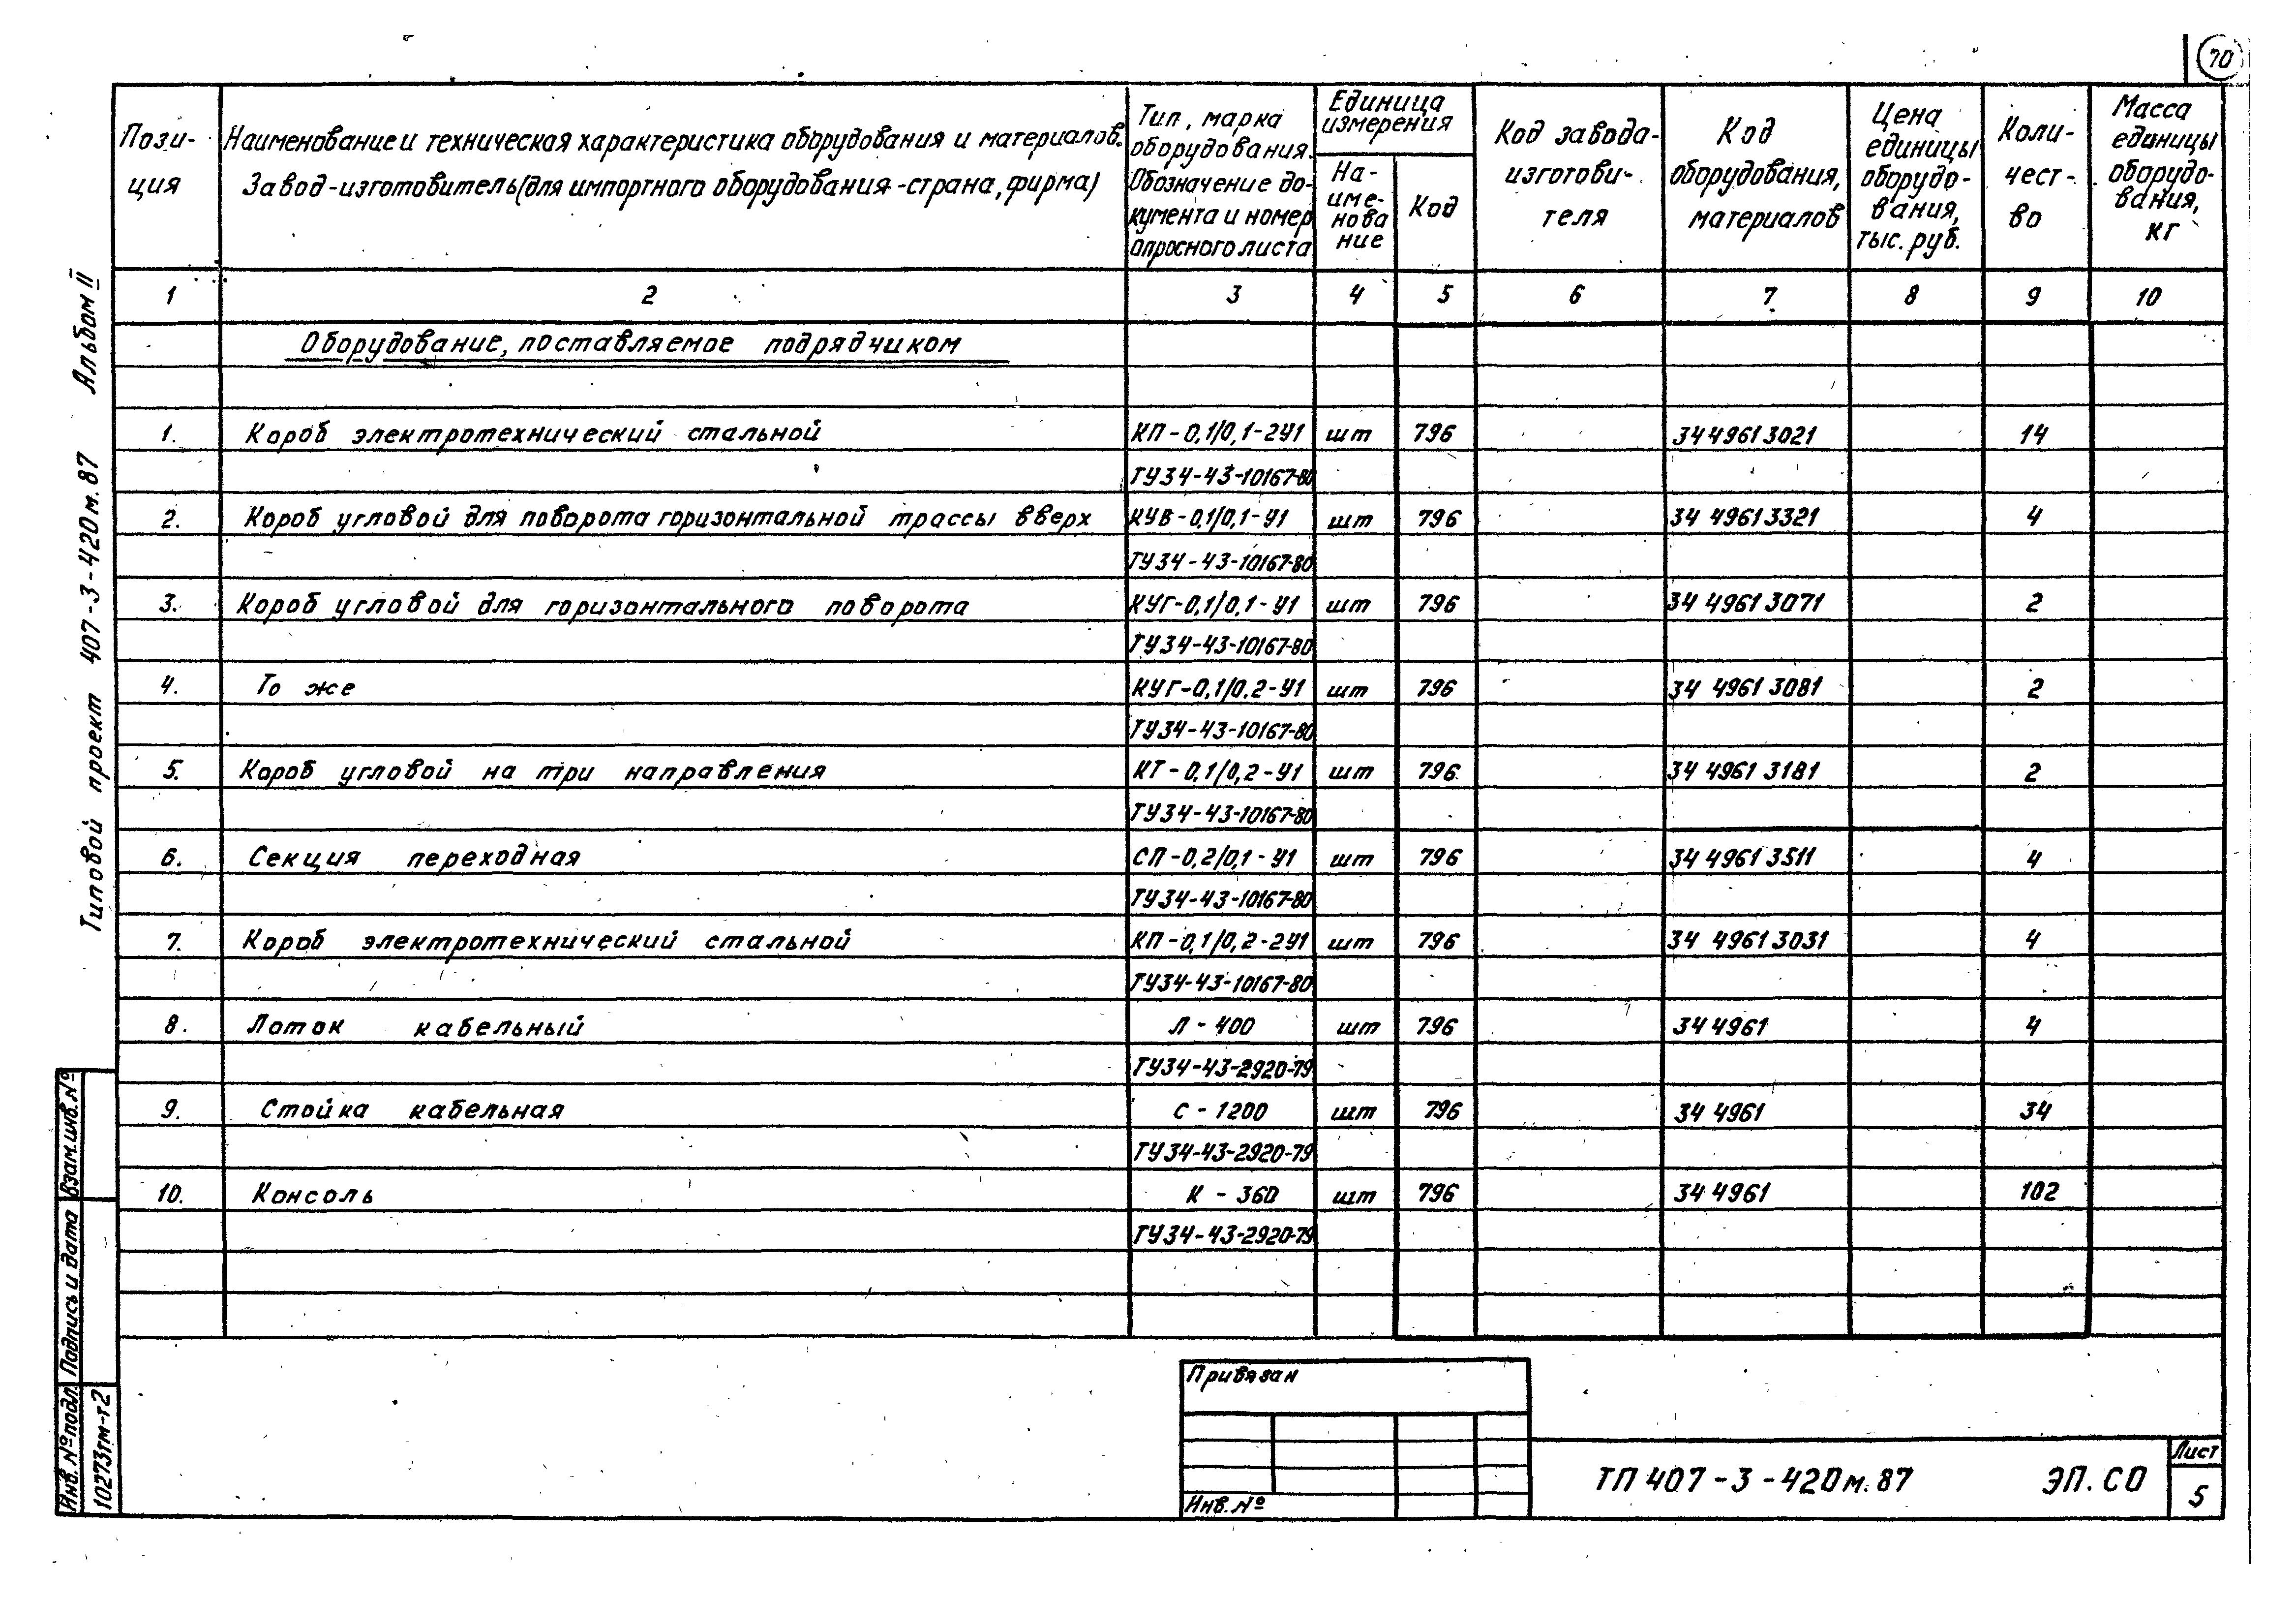 70
Пози-
ция
Наименование и техническая характеристика оборудования и материалов.
Завод-изготовитель (для импортного оборудования - страна, фирма)
Тип, марка
оборудования.
Обозначение до-
кумента и номер
опросного листа
Единица
измерения
На-
име-
нова
ние
Код
Код завода-
изготови-
теля
Код
оборудования,
материалов
Цена
единицы
оборудо-
вания,
тыс. руб.
Коли-
чест-
во
Масса
единицы
оборудо-
вания,
кг
1 2 3 4 5 6 7 8 9 10
Оборудование, поставляемое подрядчиком
1. Короб электротехнический стальной КП-0,1/0,1-2У1 шт 796 34 4961 3021 14
ТУ34-43-10167-80
2. Короб угловой для поворота горизонтальной трассы вверх КУВ-0,1/0,1-У1 шт 796 34 4961 3321 4
ТУ34-43-10167-80
3. Короб угловой для горизонтального поворота КУГ-0,1/0,1-У1 шт 796 34 4961 3071 2
ТУ34-43-10167-80
4. То же КУГ-0,1/0,2-У1 шт 796 34 4961 3081 2
ТУ34-43-10167-80
5. Короб угловой на три направления КТ-0,1/0,2-У1 шт 796 34 4961 3181 2
ТУ34-43-10167-80
6. Секция переходная СП-0,2/0,1-У1 шт 796 34 4961 3511 4
ТУ34-43-10167-80
7. Короб электротехнический стальной КП-0,1/0,2-2У1 шт 796 34 4961 3031 4
ТУ34-43-10167-80
8. Лоток кабельный Л-400 шт 796 34 4961 4
ТУ34-43-2920-79
9. Стойка кабельная С-1200 шт 796 34 4961 34
ТУ34-43-2920-79
10. Консоль К-360 шт 796 34 4961 102
ТУ34-43-2920-79
Привязан
Инв. №
ТП 407-3-420м.87 ЭП.СО
Лист
5
Типовой проект 407-3-420м.87 Альбом II
Взам. инв. №
Подпись и дата
Инв. № подл.
10273тм-т2